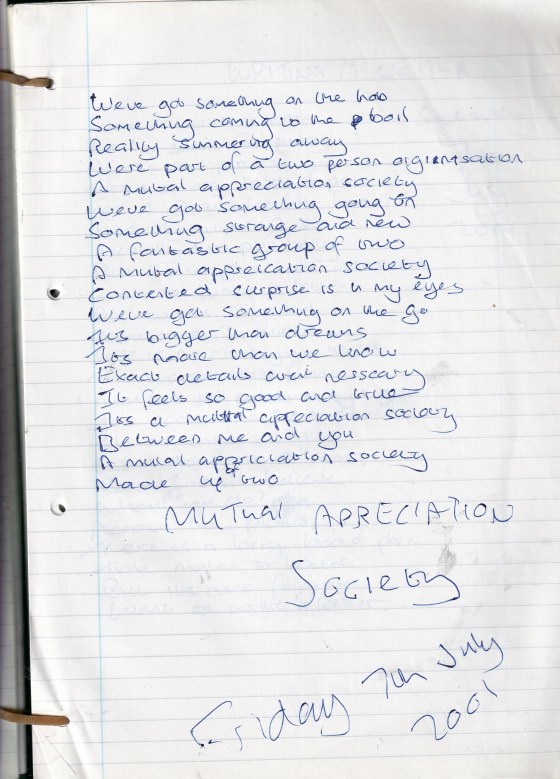 Weve got something on the hob
Something coming to the boil
Reality simmering away
Were part of a two person orginisation
A mutal appreciation society
Weve got something going on
Something strange and new
A fantastic group of two
A mutal appreication society
Contented surprise is in my eyes
Weve got something on the go
Its bigger than dreams
Its more than we know
Exact details arnt nesscary
It feels so good and true
Its a mutal appreciation society
Between me and you
A mutal appriciation society
Made up of two
MUTUAL APRECIATION
SOCIETY
Friday 7th July
2001